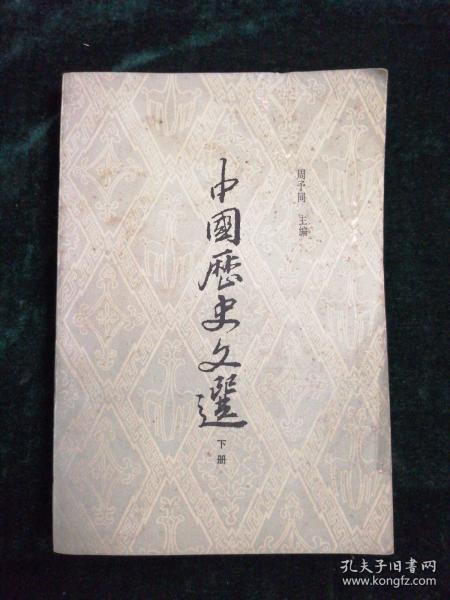 周予同 主编
中國歷史文選
下册
孔夫子旧书网
www.kongfz.com